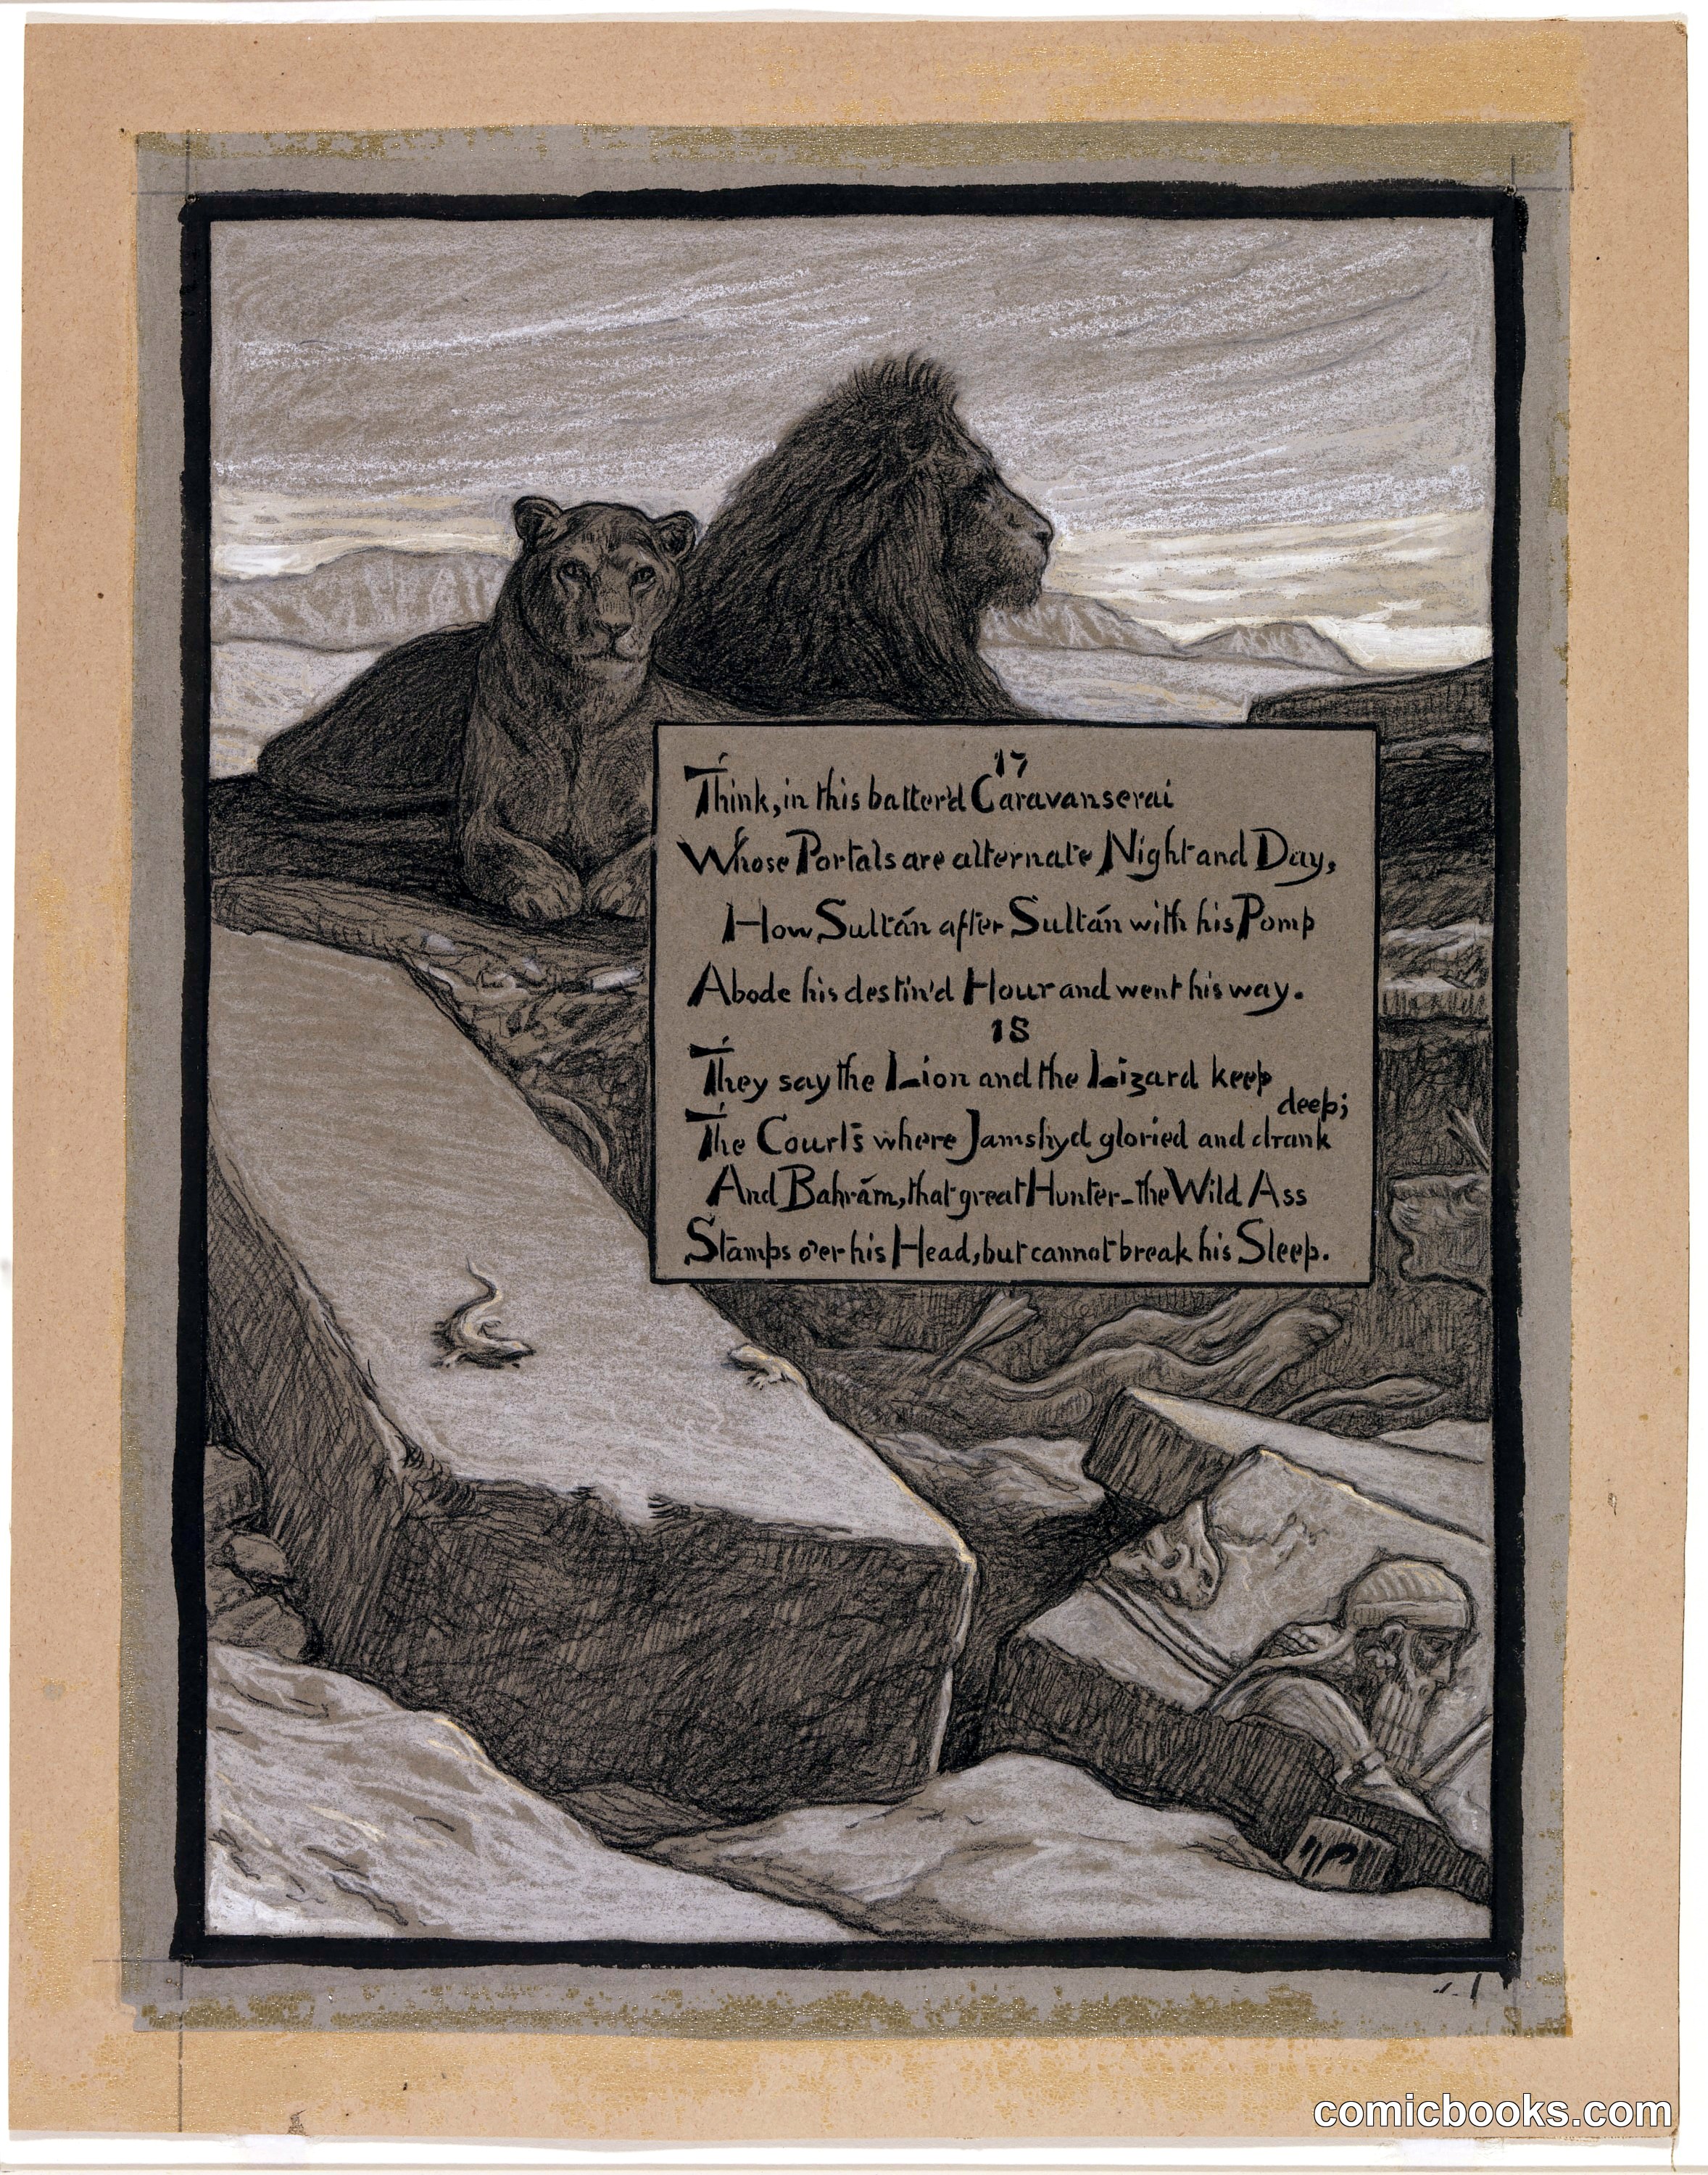 17
Think, in this batter'd Caravanserai
Whose Portals are alternate Night and Day,
How Sultán after Sultán with his Pomp
Abode his destin'd Hour and went his way.
18
They say the Lion and the Lizard keep
The Courts where Jamshyd gloried and drank deep;
And Bahrám, that great Hunter-the Wild Ass
Stamps o'er his Head, but cannot break his Sleep.
comicbooks.com